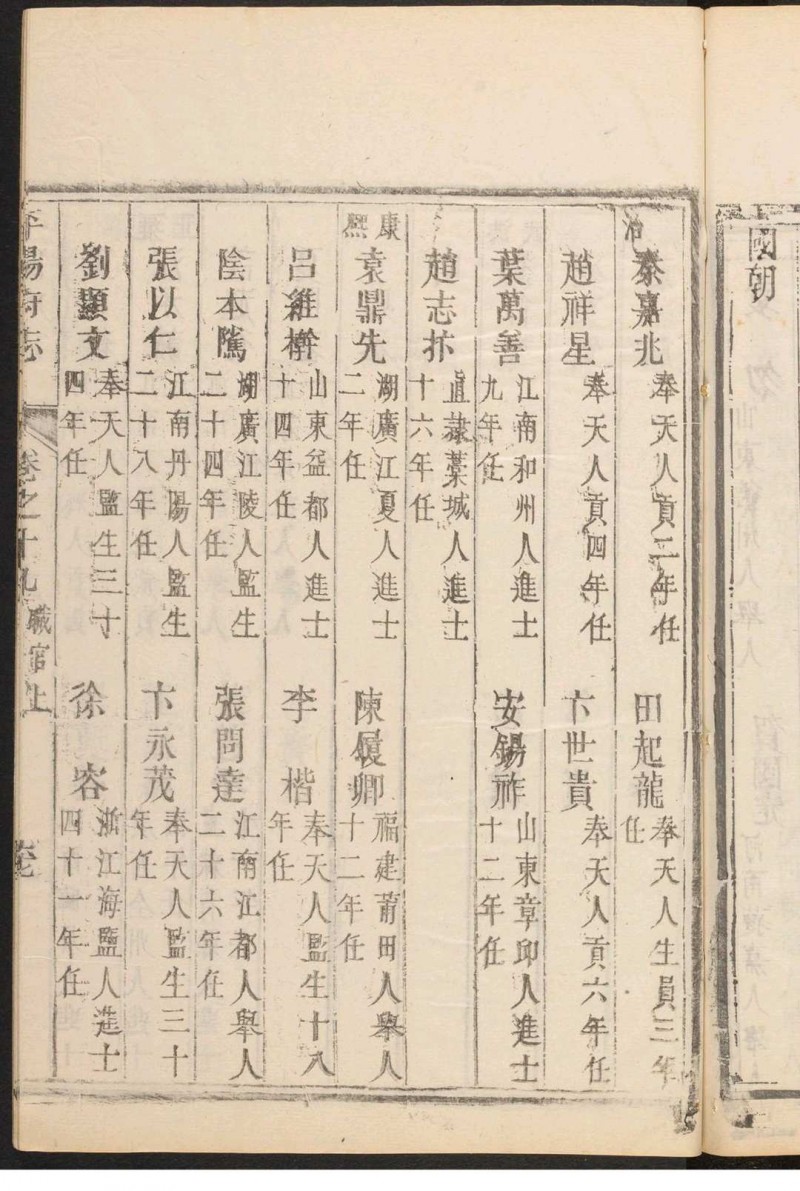 國朝
治 秦嘉兆 奉天人貢二年任 田起龍 奉天人生員三年任
趙祥星 奉天人貢四年任 卞世貴 奉天人貢六年任
葉萬善 江南和州人進士九年任 安錫祚 山東章邱人進士十二年任
趙志忭 直隸藁城人進士十六年任
康熙 袁鼎先 湖廣江夏人進士二年任 陳履卿 福建莆田人舉人十二年任
呂維㰂 山東益都人進士十四年任 李楷 奉天人監生十八年任
陰本隲 湖廣江陵人監生二十四年任 張問達 江南江都人舉人二十六年任
張以仁 江南丹陽人監生二十八年任 卞永茂 奉天人監生三十年任
劉顯文 奉天人監生三十四年任 徐容 浙江海鹽人進士四十一年任
平陽府志 卷之十九 職官上